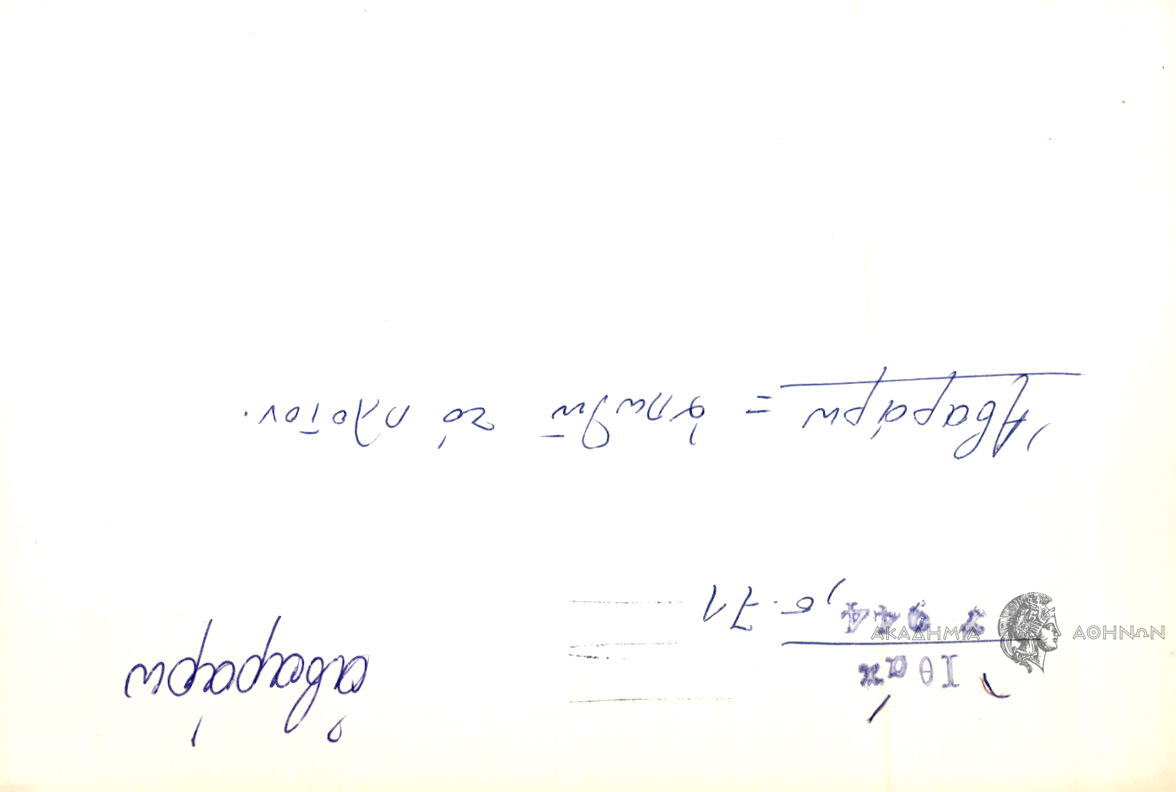 ἀβαράρω
Ἰθάκ
7 944, σ. 71
Ἀβαράρω = ἀπωθῶ τό πλοῖον.
ΑΚΑΔΗΜΙΑ ΑΘΗΝΩΝ